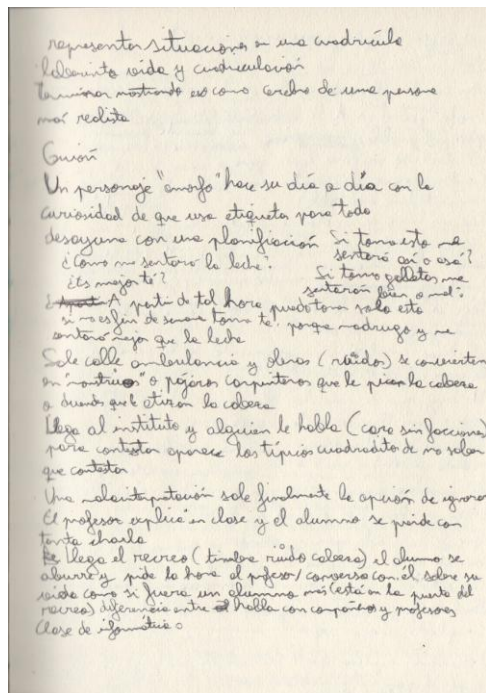 representar situaciones en una cuadrícula
laberinto vida y cuadriculación
terminar mostrando eso como cerebro de una persona
más realista
Guión
Un personaje "amorfo" hace su día a día con la
curiosidad de que usa etiquetas para todo
desayuna con una planificación Si tomo esto me
sentará así o asá?
¿Como me sentará la leche?
Si tomo galletas me
sentarán bien o mal?
¿Es mejor té?
A partir de tal hora puedo tomar solo esto
si no es fin de semana tomo té porque madrugo y me
sentará mejor que la leche
Sale calle ambulancia y obras (ruidos) se convierten
en "monstruos" o pájaros carpinteros que le pican la cabeza
o duendes que le atizan la cabeza
Llega al instituto y alguien le habla (cara sin facciones)
para contestar aparece los típicos cuadraditos de no saber
que contestar
Una malinterpretación sale finalmente la opción de ignorar
El profesor explica en clase y el alumno se pierde con
tanta charla
Llega el recreo (timbre ruido cabeza) el alumno se
aburre y pide la hora al profesor/conversa con él sobre su
vida como si fuera un alumno más (está en la puerta del
recreo) diferencia entre habla con compañeros y profesores
Clase de informática